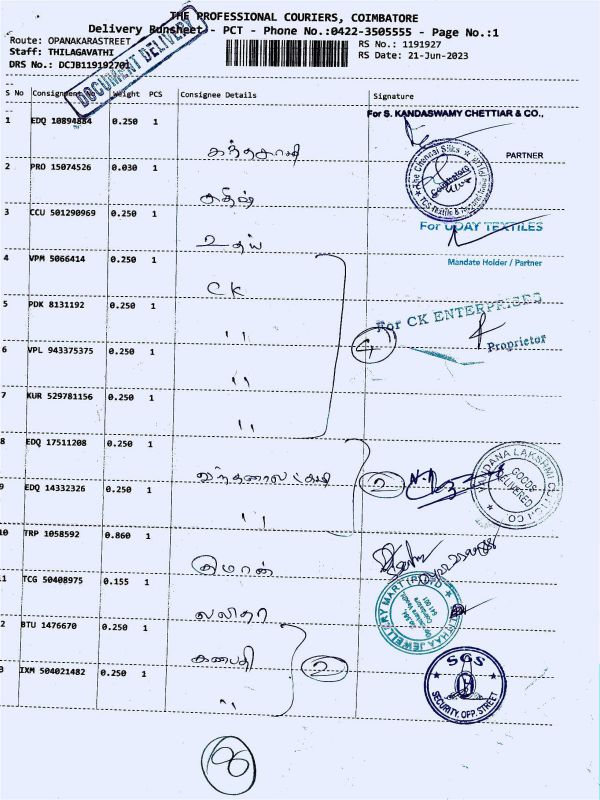 THE PROFESSIONAL COURIERS, COIMBATORE
Delivery Runsheet - PCT - Phone No.:0422-3505555 - Page No.:1
Route: OPANAKARASTREET
RS No.: 1191927
Staff: THILAGAVATHI
RS Date: 21-Jun-2023
DRS No.: DCJB119192701
DOCUMENT DELIVERY
S No Consignment No Weight PCS Consignee Details Signature
1 EDQ 10894884 0.250 1 கந்தசாமி
For S. KANDASWAMY CHETTIAR & CO.,
PARTNER
2 PRO 15074526 0.030 1
The Chennai Silks
Coimbatore
3 CCU 501290969 0.250 1 உதய்
For UDAY TEXTILES
Mandate Holder / Partner
4 VPM 5066414 0.250 1 CK
5 PDK 8131192 0.250 1 "
For CK ENTERPRISES
Proprietor
4
6 VPL 943375375 0.250 1 "
7 KUR 529781156 0.250 1 "
8 EDQ 17511208 0.250 1
2
GOODS DELIVERED
9 EDQ 14332326 0.250 1 "
10 TRP 1058592 0.860 1
1 TCG 50408975 0.155 1 லலிதா
JEWELLERY MART (P) LTD
641 001
2 BTU 1476670 0.250 1 கணபதி
2
3 IXM 504021482 0.250 1 "
SGS
SECURITY, OPP. STREET